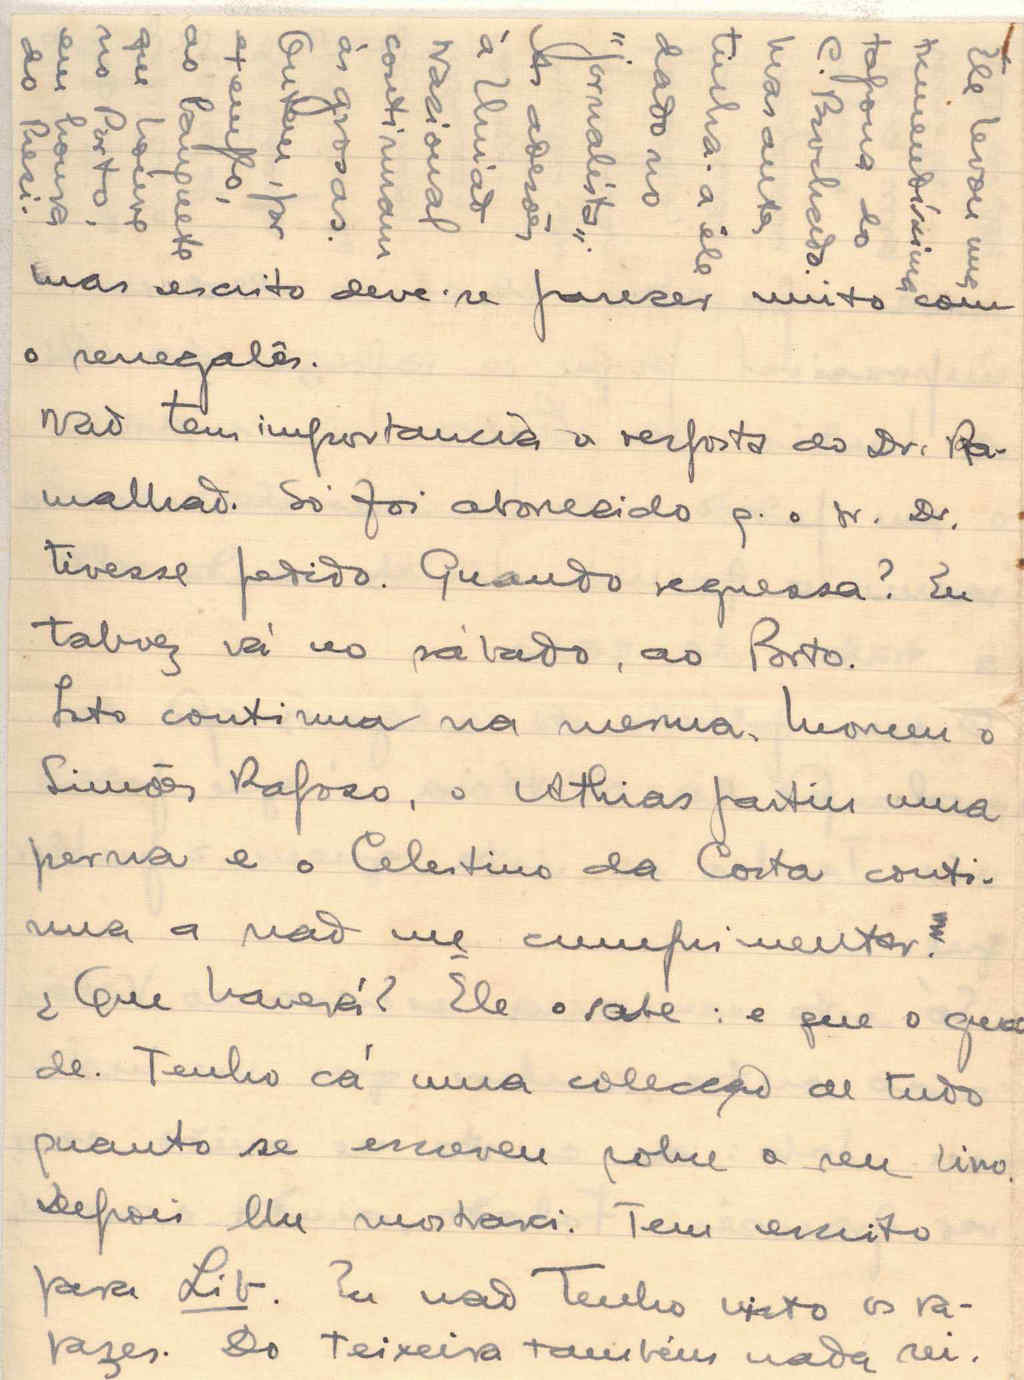 mas escrito deve-se parecer muito com
o senegalês.
Não tem importancia a resposta do Dr. Ra-
malhão. Só foi aborrecido q. o sr. Dr.
tivesse pedido. Quando regressa? Eu
talvez vá no sábado, ao Porto.
Isto continua na mesma. Morreu o
Simões Raposo, o Athias partiu uma
perna e o Celestino da Costa conti-
nua a não me cumprimentar.
¿Que haverá? Ele o sabe: e que o guar
de. Tenho cá uma colecção de tudo
quanto se escreveu sobre o seu livro.
Depois lhe mostrarei. Tem escrito
para Lib. Eu não tenho visto os ra-
pazes. Do Teixeira também nada sei.
Ele levou uns
tremendíssimos
tapona do
C. Brochado.
Mas antes
tinha-a êle
dado no
"jornalista".
As adesões
à União
Nacional
continuam
às grosas.
Ontem, por
exemplo,
ao banquete
que houve
no Porto,
em honra
do Presi-